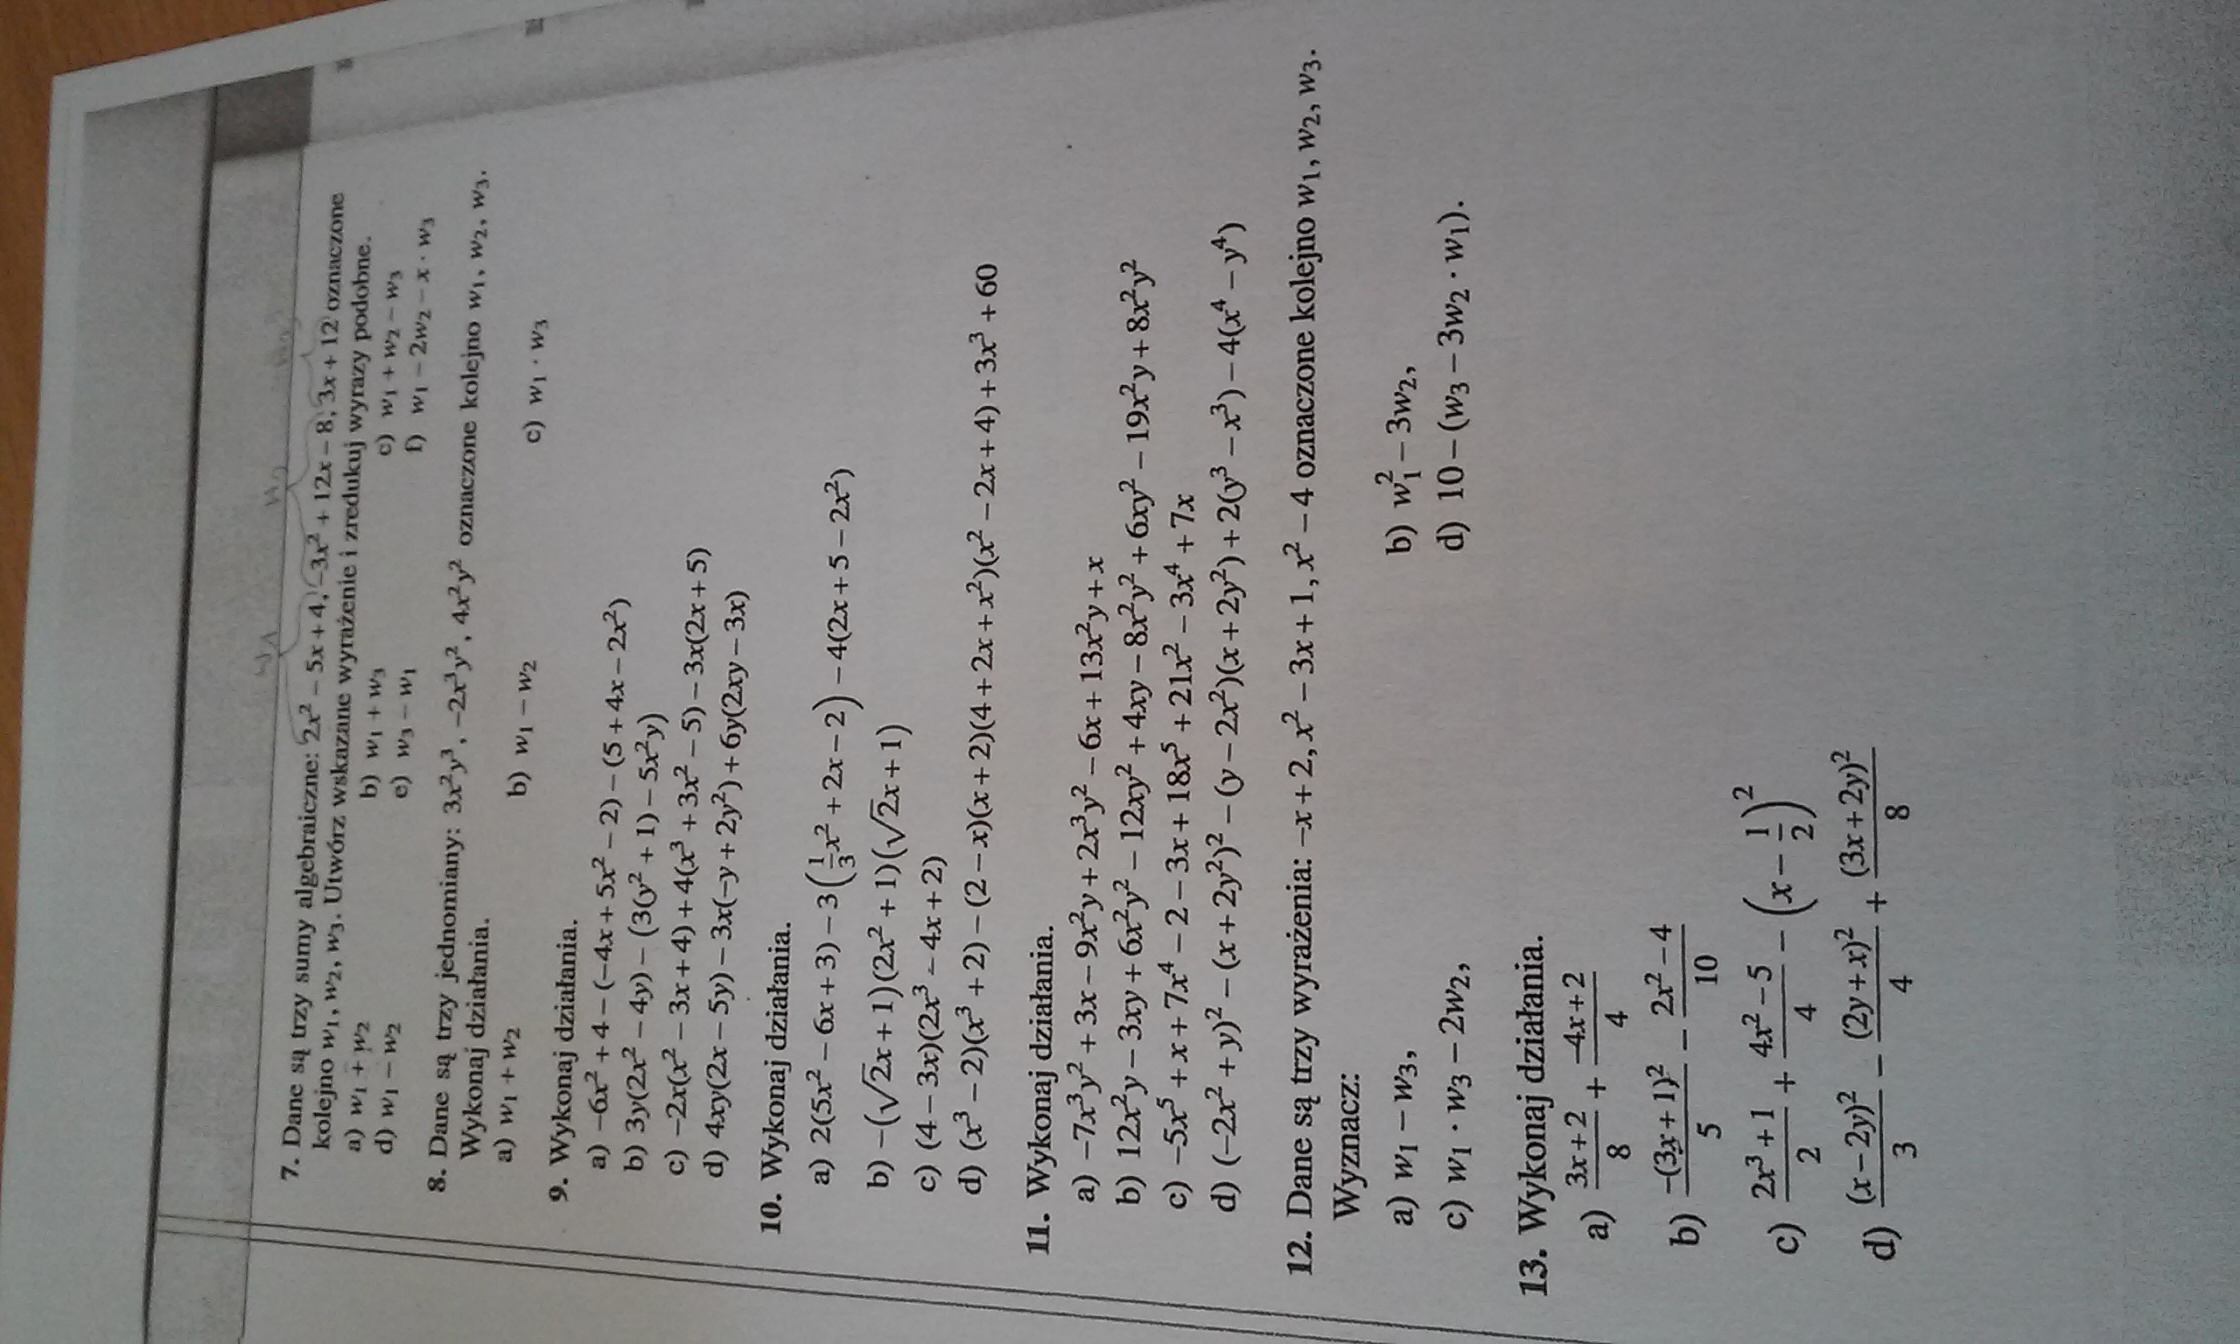 7. Dane są trzy sumy algebraiczne: 2x² − 5x + 4, −3x² + 12x − 8, 3x + 12 oznaczone
kolejno w₁, w₂, w₃. Utwórz wskazane wyrażenie i zredukuj wyrazy podobne.
a) w₁ + w₂ b) w₁ + w₃ c) w₁ + w₂ − w₃
d) w₁ − w₂ e) w₃ − w₁ f) w₁ − 2w₂ − x · w₃
8. Dane są trzy jednomiany: 3x²y³, −2x³y², 4x²y² oznaczone kolejno w₁, w₂, w₃.
Wykonaj działania.
a) w₁ + w₂ b) w₁ − w₂ c) w₁ · w₃
9. Wykonaj działania.
a) −6x² + 4 − (−4x + 5x² − 2) − (5 + 4x − 2x²)
b) 3y(2x² − 4y) − (3(y² + 1) − 5x²y)
c) −2x(x² − 3x + 4) + 4(x³ + 3x² − 5) − 3x(2x + 5)
d) 4xy(2x − 5y) − 3x(−y + 2y²) + 6y(2xy − 3x)
10. Wykonaj działania.
a) 2(5x² − 6x + 3) − 3(1/3 x² + 2x − 2) − 4(2x + 5 − 2x²)
b) −(√2x + 1)(2x² + 1)(√2x + 1)
c) (4 − 3x)(2x³ − 4x + 2)
d) (x³ − 2)(x³ + 2) − (2 − x)(x + 2)(4 + 2x + x²)(x² − 2x + 4) + 3x³ + 60
11. Wykonaj działania.
a) −7x³y² + 3x − 9x²y + 2x³y² − 6x + 13x²y + x
b) 12x²y − 3xy + 6x²y² − 12xy² + 4xy − 8x²y² + 6xy² − 19x²y + 8x²y²
c) −5x⁵ + x + 7x⁴ − 2 − 3x + 18x⁵ + 21x² − 3x⁴ + 7x
d) (−2x² + y)² − (x + 2y²)² − (y − 2x²)(x + 2y²) + 2(y³ − x³) − 4(x⁴ − y⁴)
12. Dane są trzy wyrażenia: −x + 2, x² − 3x + 1, x² − 4 oznaczone kolejno w₁, w₂, w₃.
Wyznacz:
a) w₁ − w₃, b) w₁² − 3w₂,
c) w₁ · w₃ − 2w₂, d) 10 − (w₃ − 3w₂ · w₁).
13. Wykonaj działania.
a) (3x + 2)/8 + (−4x + 2)/4
b) −(3x + 1)²/5 − (2x² − 4)/10
c) (2x³ + 1)/2 + (4x² − 5)/4 − (x − 1/2)²
d) (x − 2y)²/3 − (2y + x)²/4 + (3x + 2y)²/8